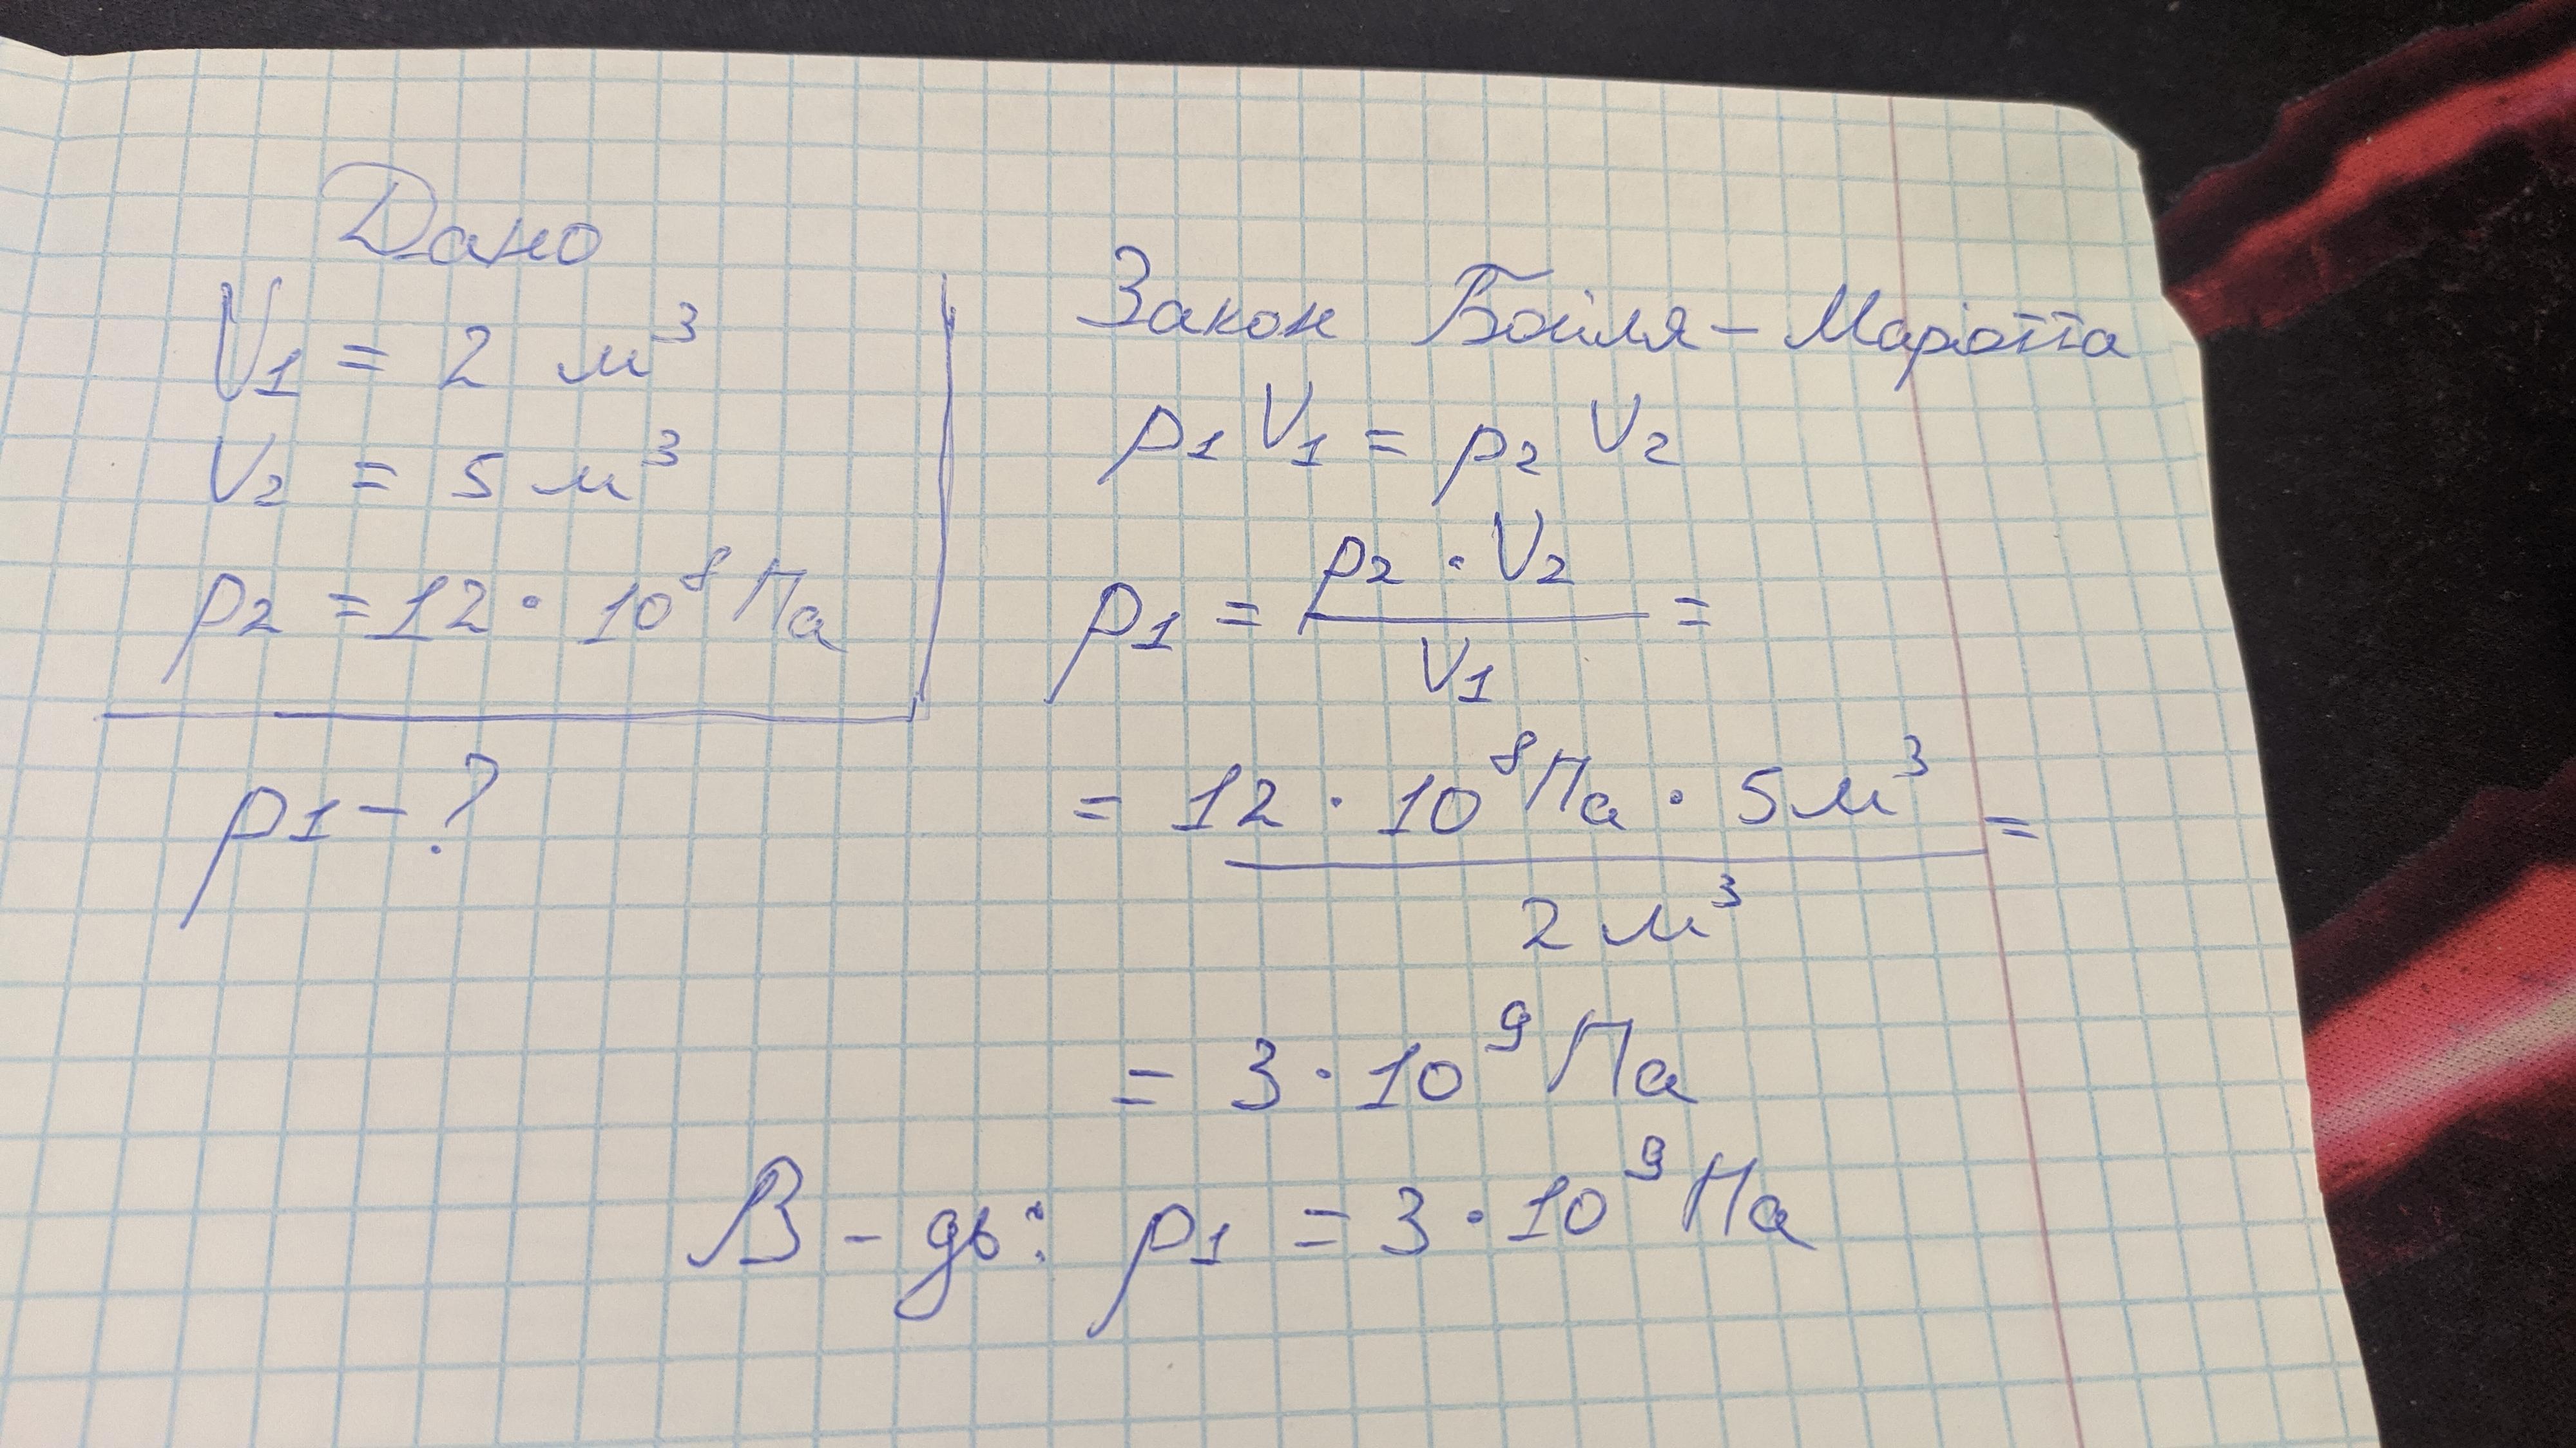 Дано
V₁ = 2 м³
V₂ = 5 м³
p₂ = 12 · 10⁸ Па
p₁ - ?
Закон Бойля - Маріотта
p₁ V₁ = p₂ V₂
p₁ = p₂ · V₂ / V₁ =
= 12 · 10⁸ Па · 5 м³ / 2 м³ =
= 3 · 10⁹ Па
В - дь: p₁ = 3 · 10⁹ Па